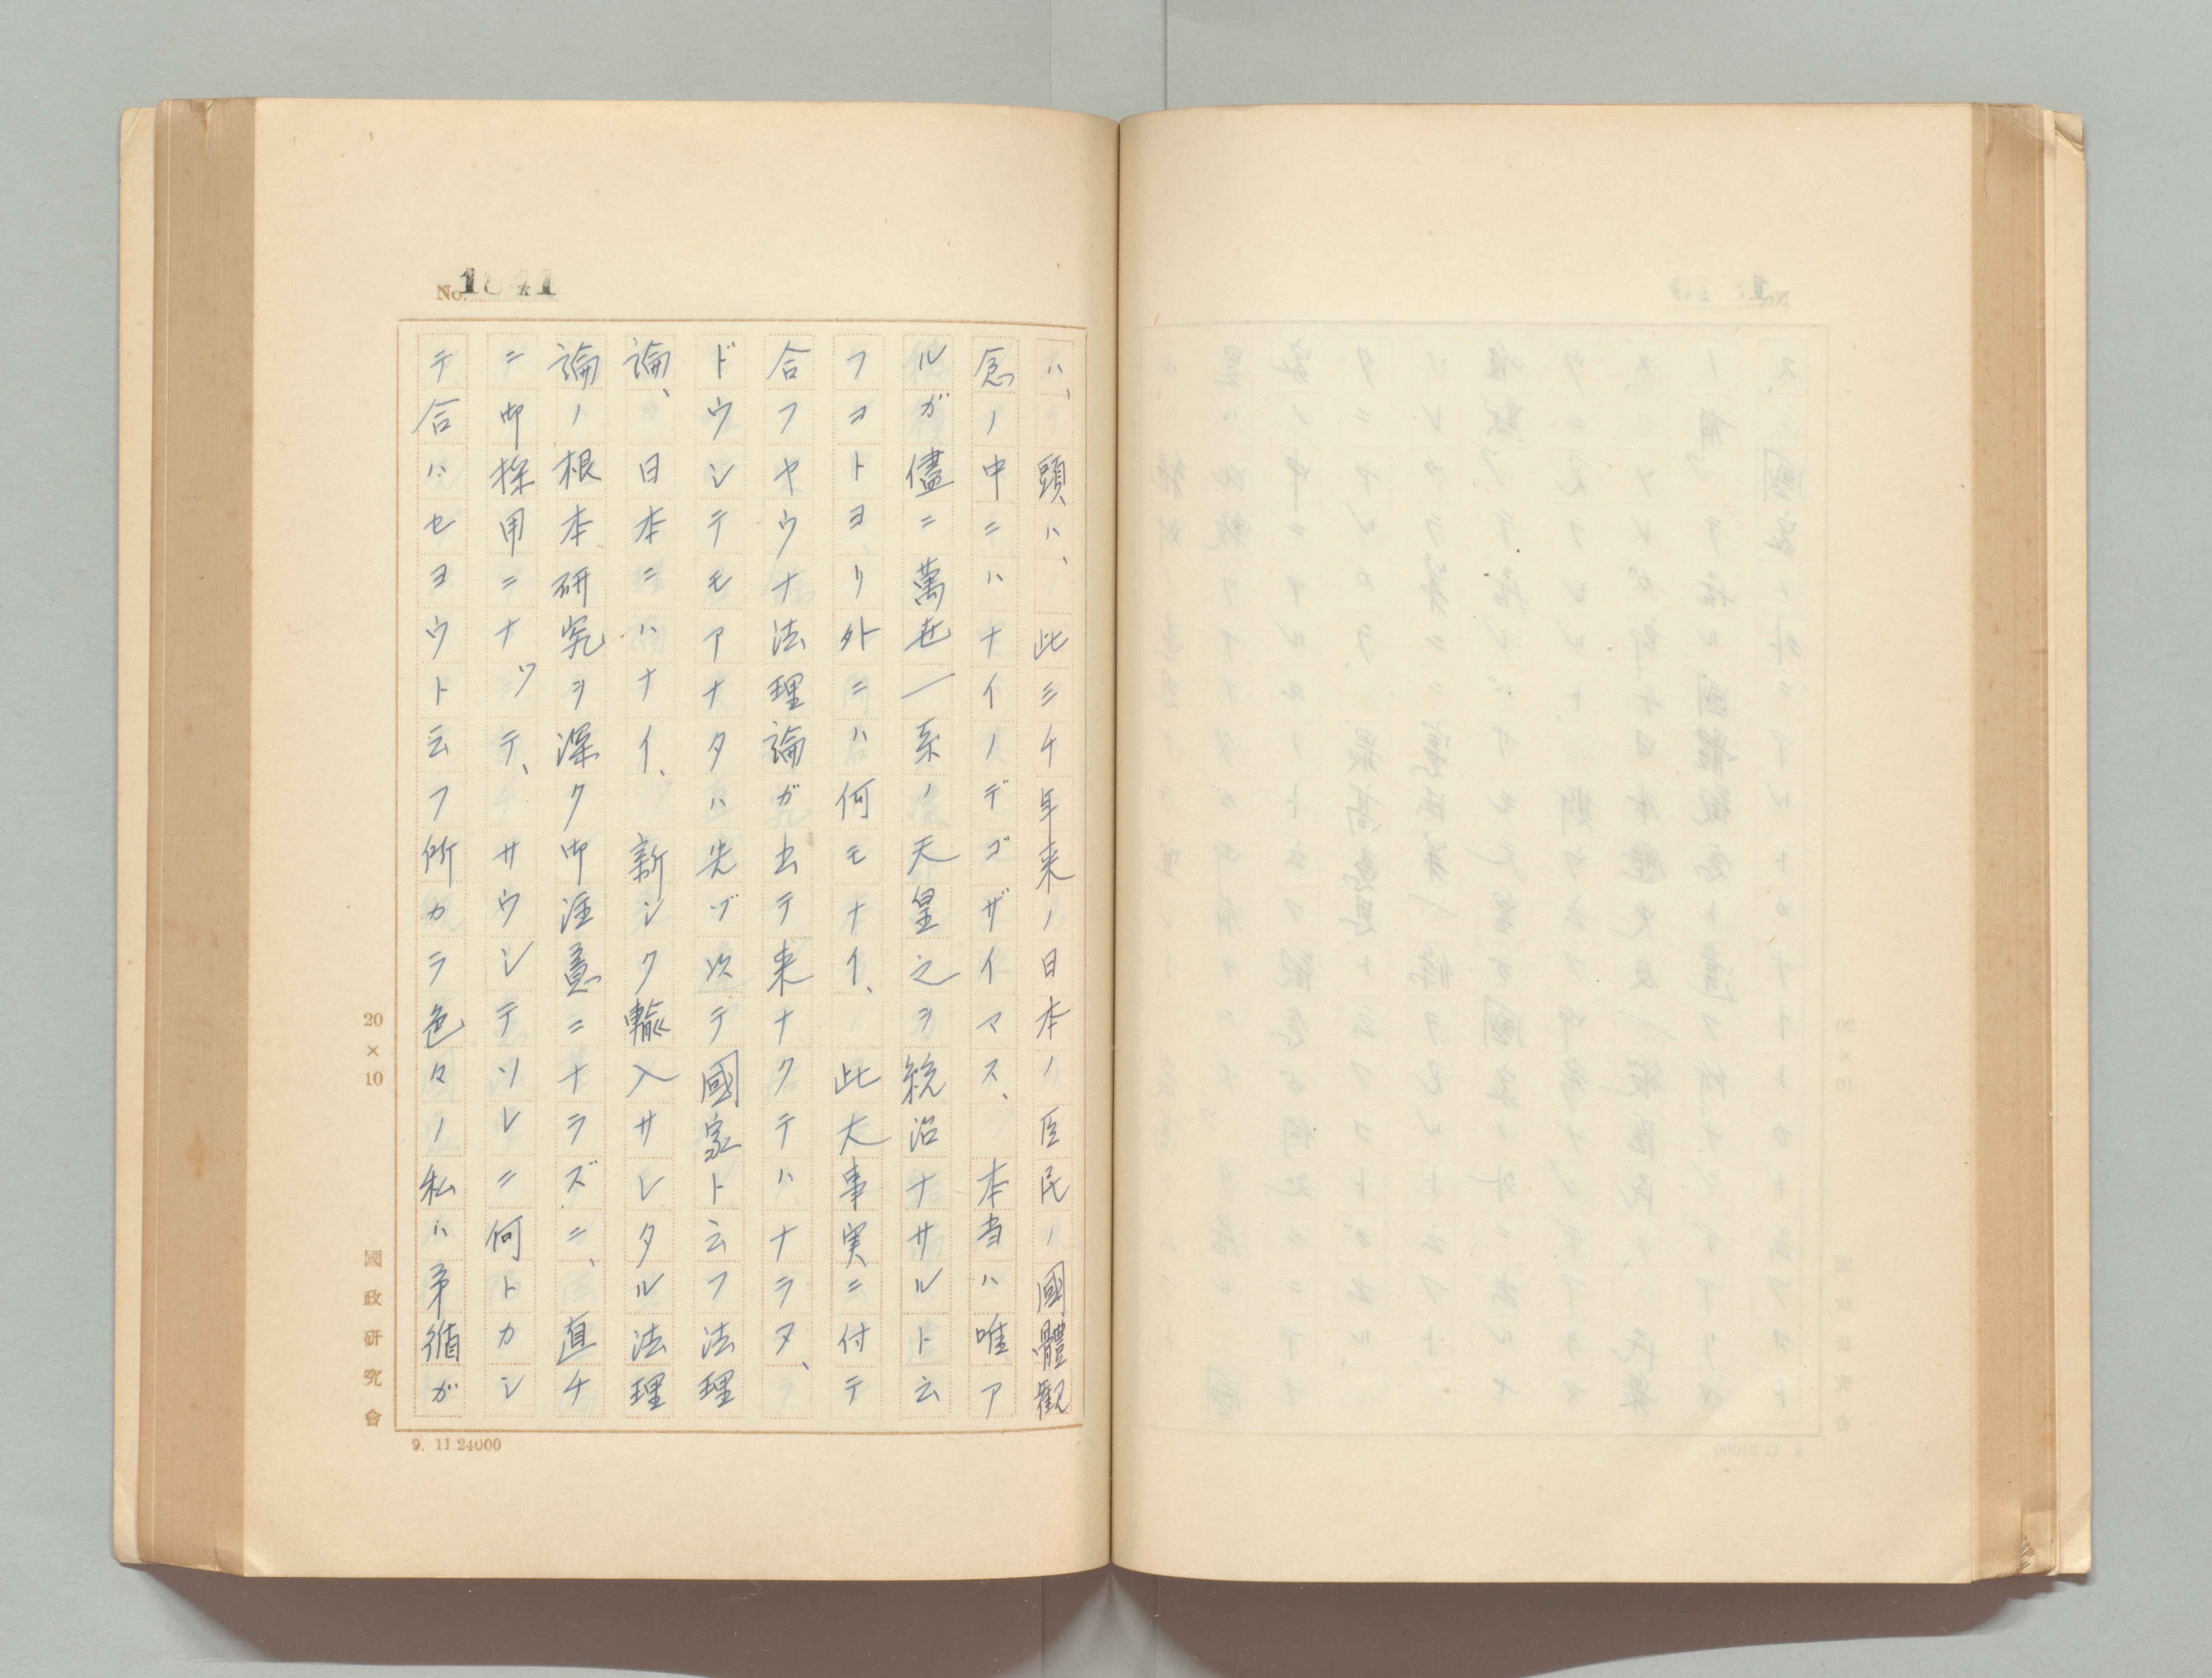 No. 1841
ハ、頭ハ、此ミチ年来ノ日本ノ臣民ノ國體観
念ノ中ニハナイノデゴザイマス、本当ハ唯ア
ルガ儘ニ萬世一系ノ天皇之ヲ統治ナサルト云
フヨトヨリ外ニハ何モナイ、此大事実ニ付テ
合フヤウナ法理論ガ出テ来ナクテハナラヌ、
ドウシテモアナタハ先ヅ以テ國家ト云フ法理
論、日本ニハナイ、新シク輸入サレタル法理
論ノ根本研究ヲ深ク御注意ニナラズニ、直チ
ニ御採用ニナツテ、サウシテソレニ何トカシ
テ合ハセヨウト云フ所カラ色々ノ私ハ矛循ガ
20×10
國政研究會
9. 11 24000